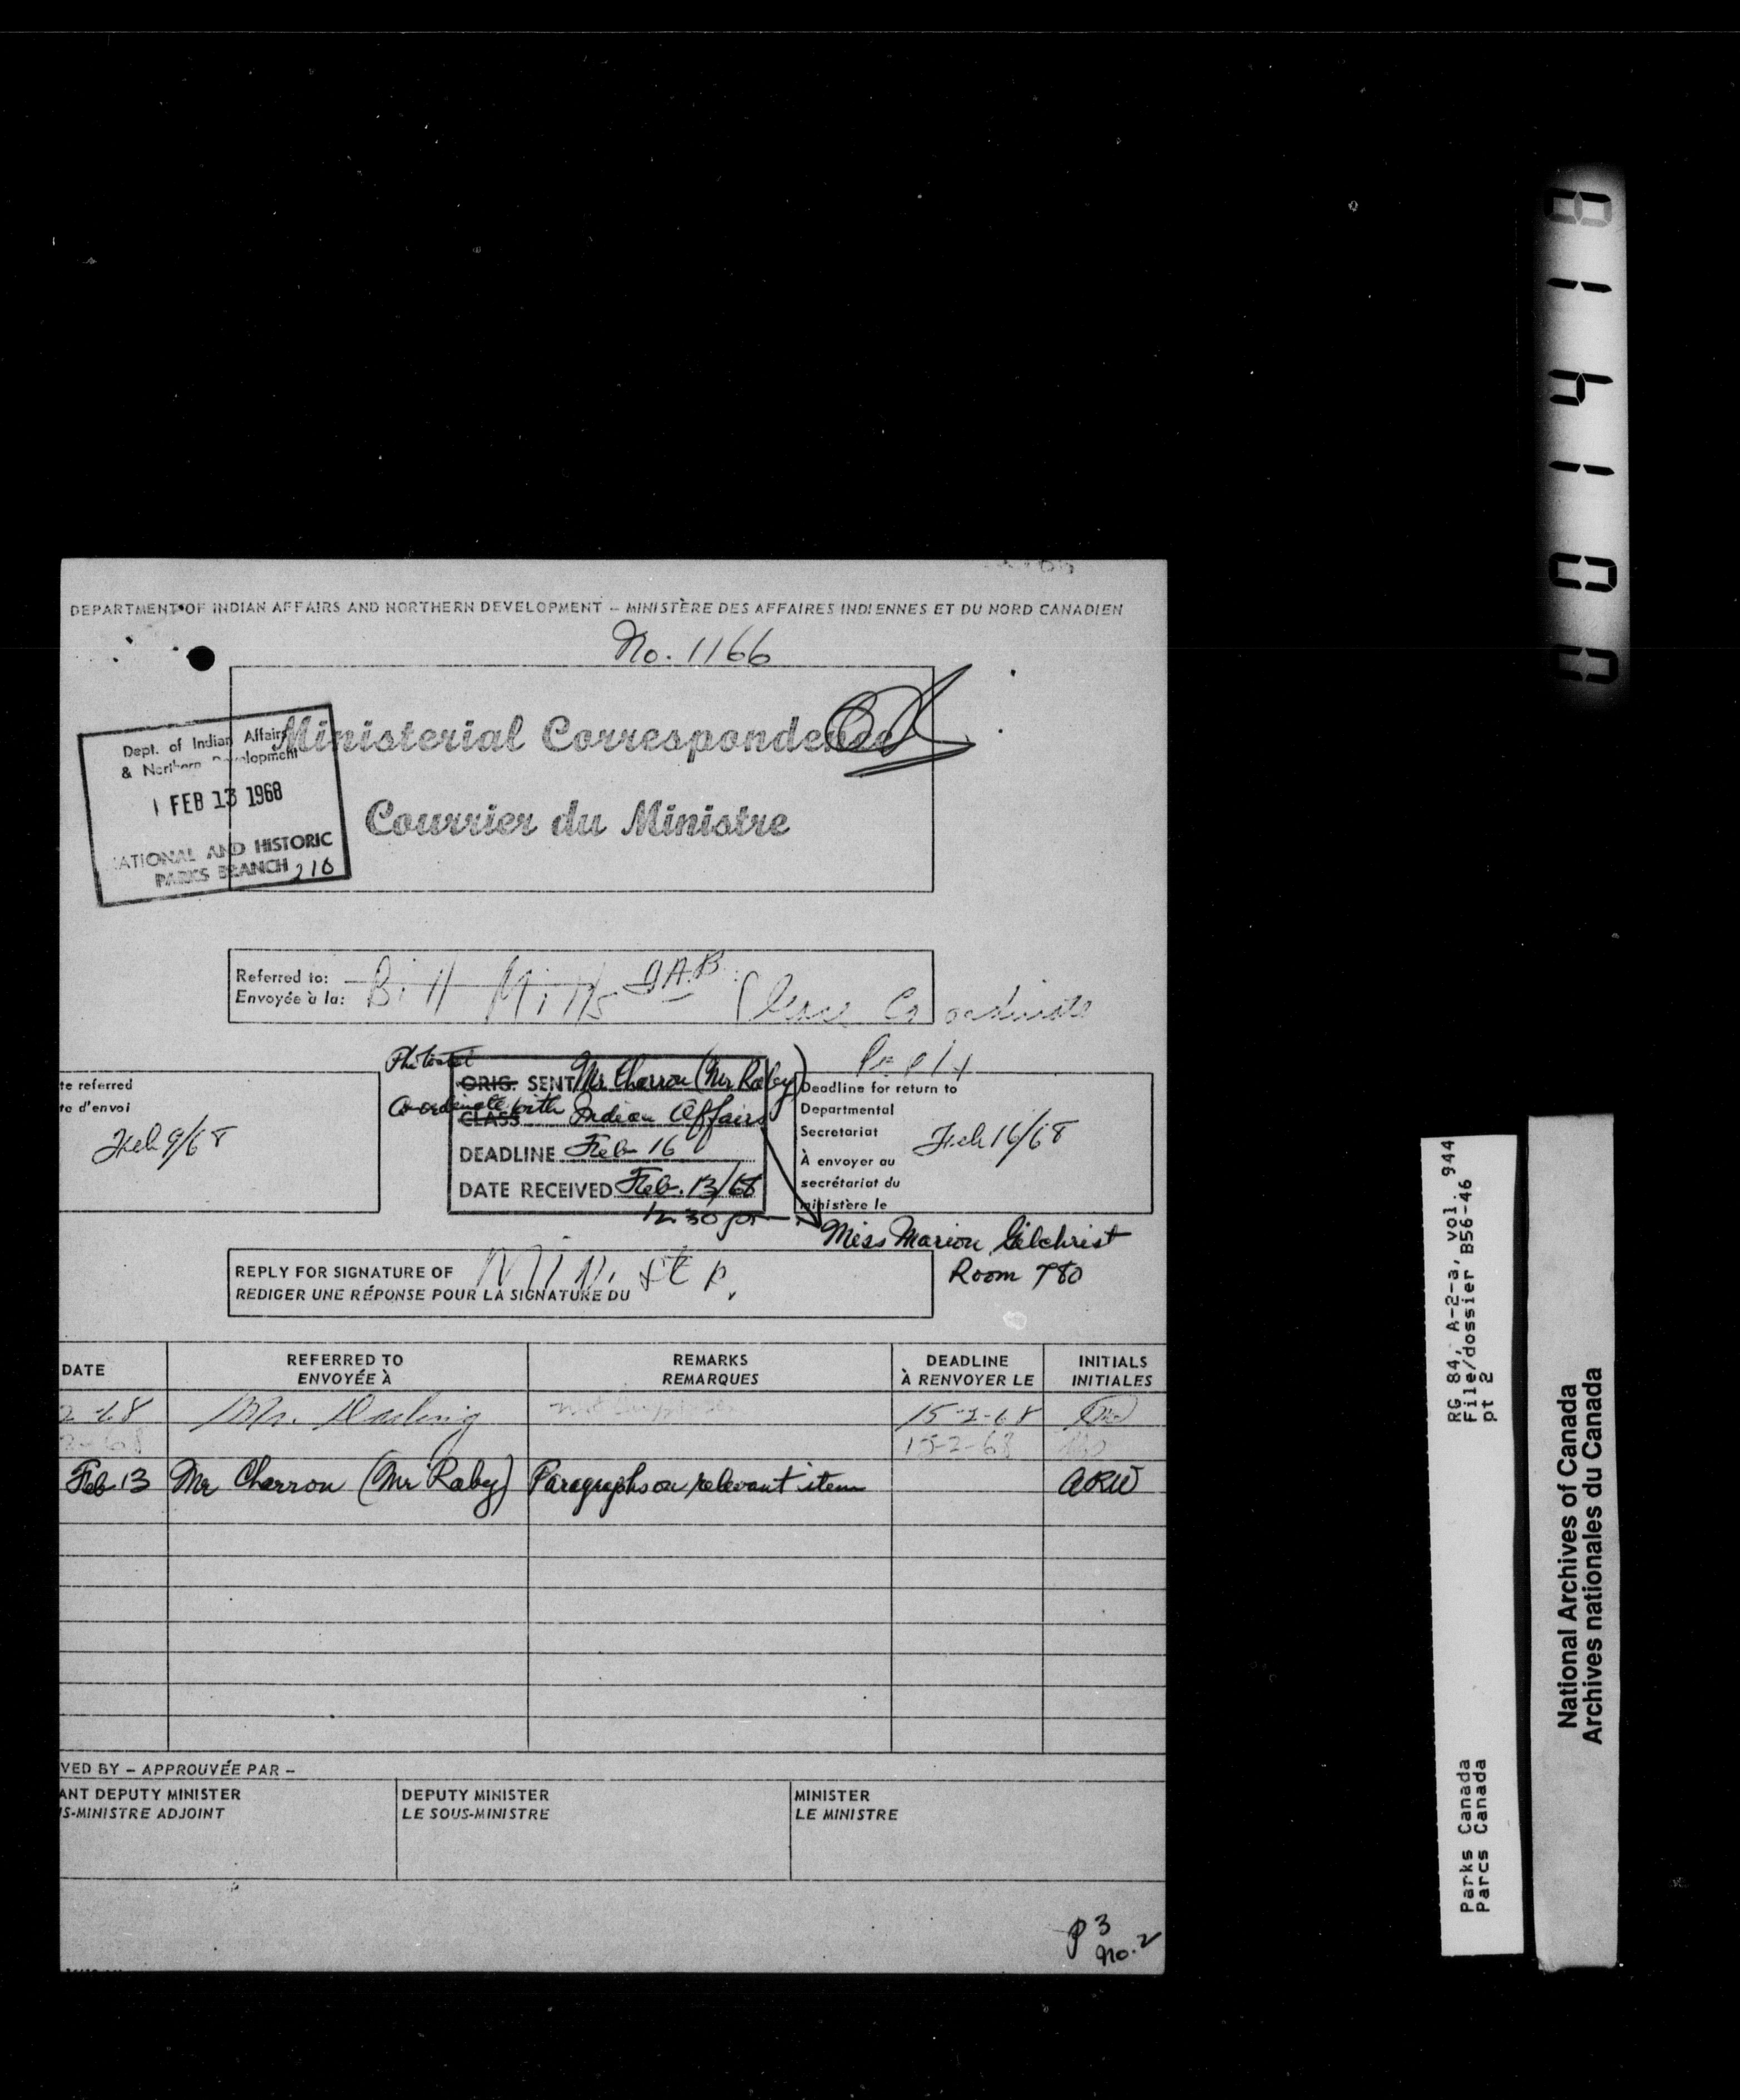 DEPARTMENT OF INDIAN AFFAIRS AND NORTHERN DEVELOPMENT – MINISTÈRE DES AFFAIRES INDIENNES ET DU NORD CANADIEN
No. 1166
Ministerial Correspondence
Courrier du Ministre
Dept. of Indian Affairs
& Northern Development
FEB 13 1968
NATIONAL AND HISTORIC
PARKS BRANCH 216
Referred to:
Envoyée à la:
Bill Mills IAB
Please Co ordinate
Reply
te referred
te d'envoi
Feb 9/68
Photostat
ORIG. SENT Mr Charron (Mr Raby)
Co-ordinate with Indian Affairs
CLASS
DEADLINE Feb 16
DATE RECEIVED Feb. 13/68
12 30 pm
Deadline for return to
Departmental
Secretariat
À envoyer au
secrétariat du
ministère le
Feb 16/68
Miss Marion Gilchrist
Room 780
REPLY FOR SIGNATURE OF
REDIGER UNE RÉPONSE POUR LA SIGNATURE DU
DATE
REFERRED TO
ENVOYÉE À
REMARKS
REMARQUES
DEADLINE
À RENVOYER LE
INITIALS
INITIALES
2-68 Mr. Darling 15-2-68
2-68 15-2-68
Feb 13 Mr Charron (Mr Raby) Paragraphs on relevant item ARW
VED BY – APPROUVÉE PAR –
ANT DEPUTY MINISTER
S-MINISTRE ADJOINT
DEPUTY MINISTER
LE SOUS-MINISTRE
MINISTER
LE MINISTRE
P 3
No. 2
RG 84, A-2-a, vol. 944
File/dossier B56-46
pt 2
Parks Canada
Parcs Canada
National Archives of Canada
Archives nationales du Canada
001418